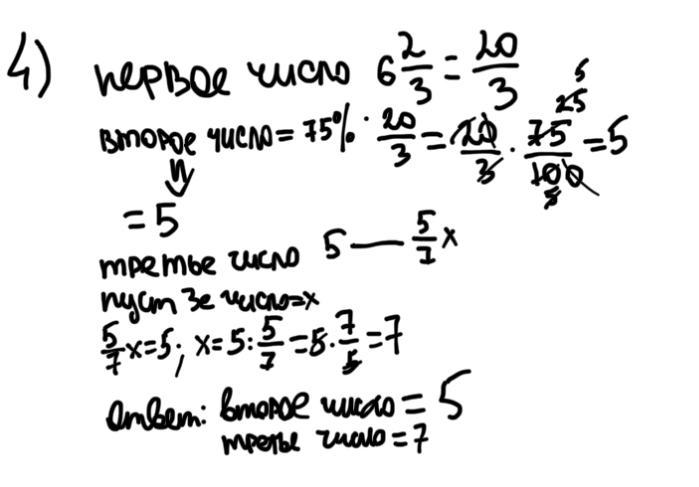 4) первое число 6 2/3 = 20/3
второе число = 75% · 20/3 = 20/3 · 75/100 = 5
25
5
5
= 5
третье число 5 — 5/7 x
пуст 3е число = x
5/7 x = 5; x = 5 : 5/7 = 5 · 7/5 = 7
ответ: второе число = 5
третье число = 7